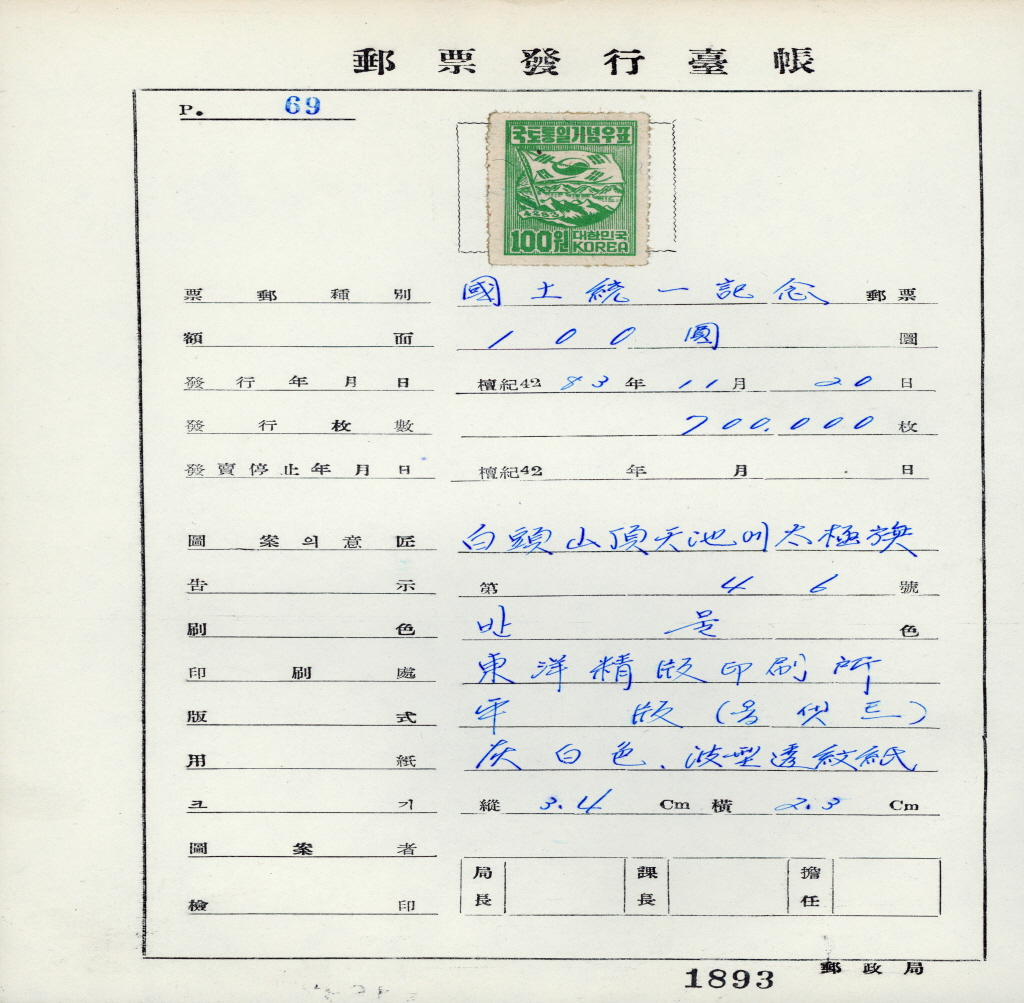 郵票發行臺帳
P. 69
국토통일기념우표
100원 대한민국 KOREA
票郵種別 國土統一記念 郵票
額面 100圓 圜
發行年月日 檀紀42 83年 11月 20日
發行枚數 700,000 枚
發賣停止年月日 檀紀42 年 月 日
圖案의意匠 白頭山頂天池에太極旗
告示 第 46 號
刷色 色
印刷處 東洋精版印刷所
版式 平版(옵셋트)
用紙 灰白色. 波型透紋紙
크기 縱 3.4 Cm 橫 2.3 Cm
圖案者
檢印 局長 課長 擔任
1893 郵政局